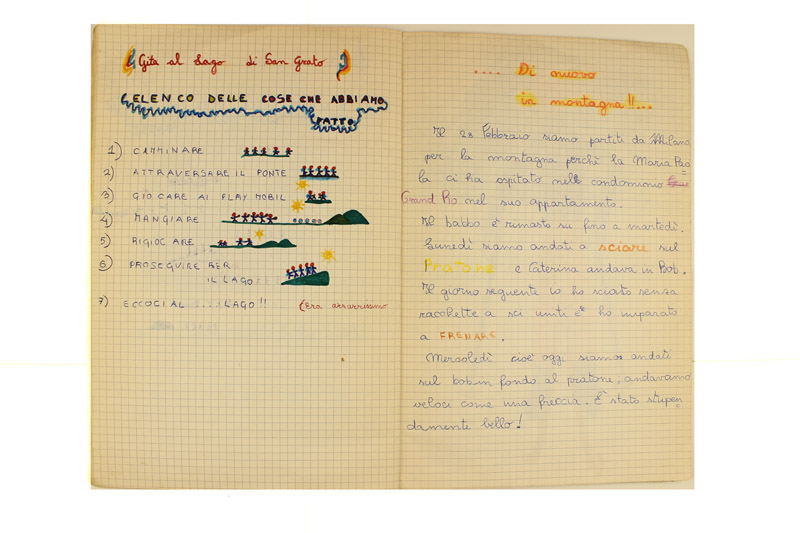 Gita al Lago di San Grato
ELENCO DELLE COSE CHE ABBIAMO
FATTO
1) CAMMINARE
2) ATTRAVERSARE IL PONTE
3) GIOCARE AI PLAY MOBIL
4) MANGIARE
5) RIGIOCARE
6) PROSEGUIRE PER
IL LAGO
7) ECCOCI AL ....LAGO!!
(Era azzurrissimo
.... Di nuovo
in montagna!!...
Il 28 Febbraio siamo partiti da Milano
per la montagna perchè la Maria Pao
la ci ha ospitato nel condominio
Grand Pio nel suo appartamento.
Il babbo è rimasto su fino a martedì.
Lunedì siamo andati a sciare sul
Pratone e Caterina andava in Bob.
Il giorno seguente io ho sciato senza
racchette a sci uniti e ho imparato
a FRENARE.
Mercoledì cioè oggi siamo andati
sul bob in fondo al pratone; andavamo
veloci come una freccia. È stato stupen
damente bello!